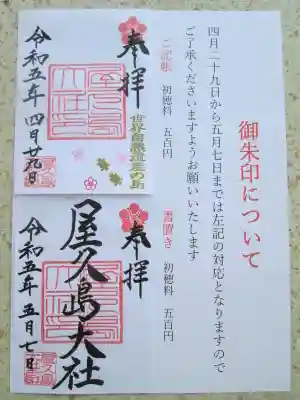 御朱印について
四月二十九日から五月七日までは左記の対応となりますので
ご了承くださいますようお願いいたします
ご記帳 初穂料 五百円
書置き 初穂料 五百円
奉拝
世界自然遺産の島
令和五年 四月廿九日
奉拝
屋久島大社
令和五年 五月七日